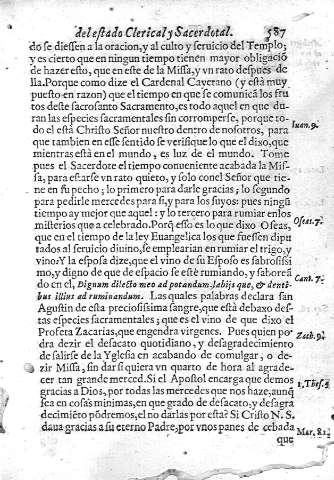 del estado Clerical y Sacerdotal. 587
do se diessen a la oracion, y al culto y seruicio del Templo;
y es cierto que en ningun tiempo tienen mayor obligació
de hazer esto, que en este de la Missa, y vn rato despues de
lla. Porque como dize el Cardenal Cayetano (y està muy
puesto en razon) que el tiempo en que se comunicá los fru
tos deste sacrosanto Sacramento, es todo aquel en que du-
ran las especies sacramentales sin corromperse, porque to-
do el està Christo Señor nuestro dentro de nosotros, para Iuan. 9.
que tambien en este sentido se verifique lo que el dixo, que
mientras està en el mundo, es luz de el mundo. Tome
pues el Sacerdote el tiempo conueniente acabada la Mis-
sa, para estarse vn rato quieto, y solo conel Señor que tie-
ne en su pecho; lo primero para darle gracias; lo segundo
para pedirle mercedes para si, y para los suyos: pues ningũ
tiempo ay mejor que aquel: y lo tercero para rumiar en los
misterios que a celebrado. Porq̃ esso es lo que dixo Oseas, Oseas. 7.
que en el tiempo de la ley Euangelica los que fuessen dipu
tados al seruicio diuino, se emplearian en rumiar el trigo, y
vino: Y la esposa dize, que el vino de su Esposo es sabrosissi
mo, y digno de que de espacio se estè rumiando, y saborea
do en el, Dignum dilecto meo ad potandum. labijs que, & denti Cant. 7.
bus illius ad ruminandum. Las quales palabras declara san
Agustin de esta preciosissima sangre, que està debaxo des-
tas especies sacramentales; que es el vino de que dixo el
Profeta Zacarias, que engendra virgenes. Pues quien po- Zach. 9.
dra dezir el desacato quotidiano, y desagradecimiento
de salirse de la Yglesia en acabando de comulgar, o de-
zir Missa, sin dar si quiera vn quarto de hora al agrade-
cer tan grande merced. Si el Apostol encarga que demos 1. Thes. 5
gracias a Dios, por todas las mercedes que nos haze, aunq̃
sea en cosas minimas, en que grado de desacato, y desagra
decimiẽto põdremos, el no darlas por esta? Si Cristo N. S.
daua gracias a su eterno Padre, por vnos panes de cebada Mar. 8.
que